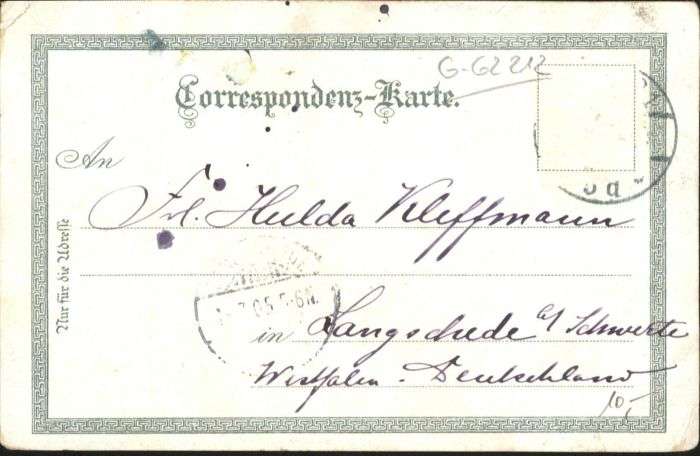 G-62212
Correspondenz-Karte.
An
Frl. Hulda Kleffmann
Nur für die Adresse
05 5-6N.
in Langschede b/ Schwerte
Westfalen - Deutschland
10,-